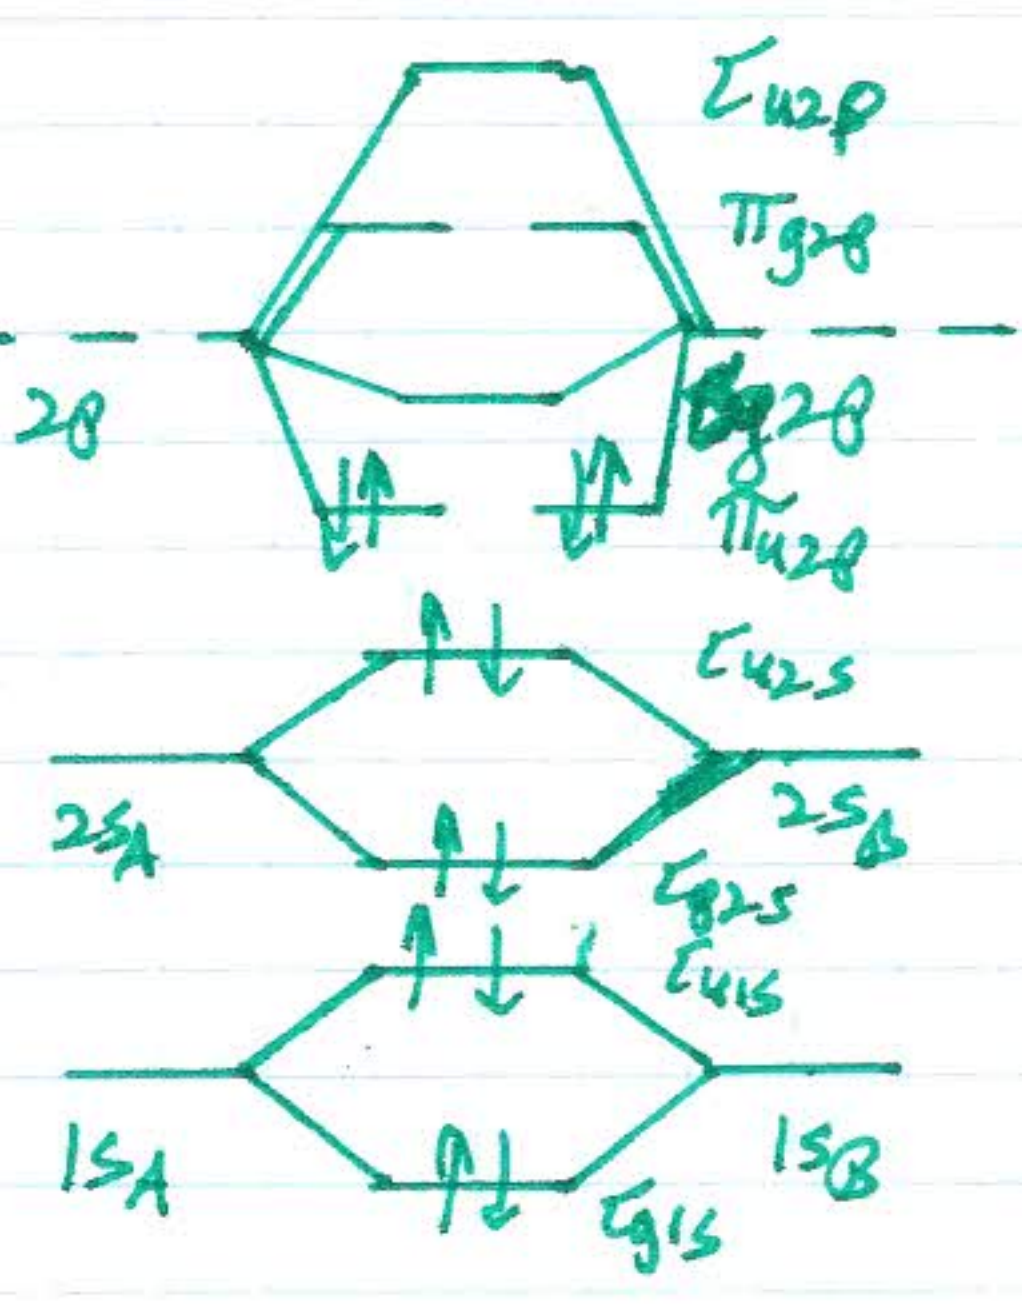 Σu2p
πg2p
2p
σg2p
πu2p
Σu2s
2sA
2sB
Σg2s
Σu1s
1sA
1sB
Σg1s